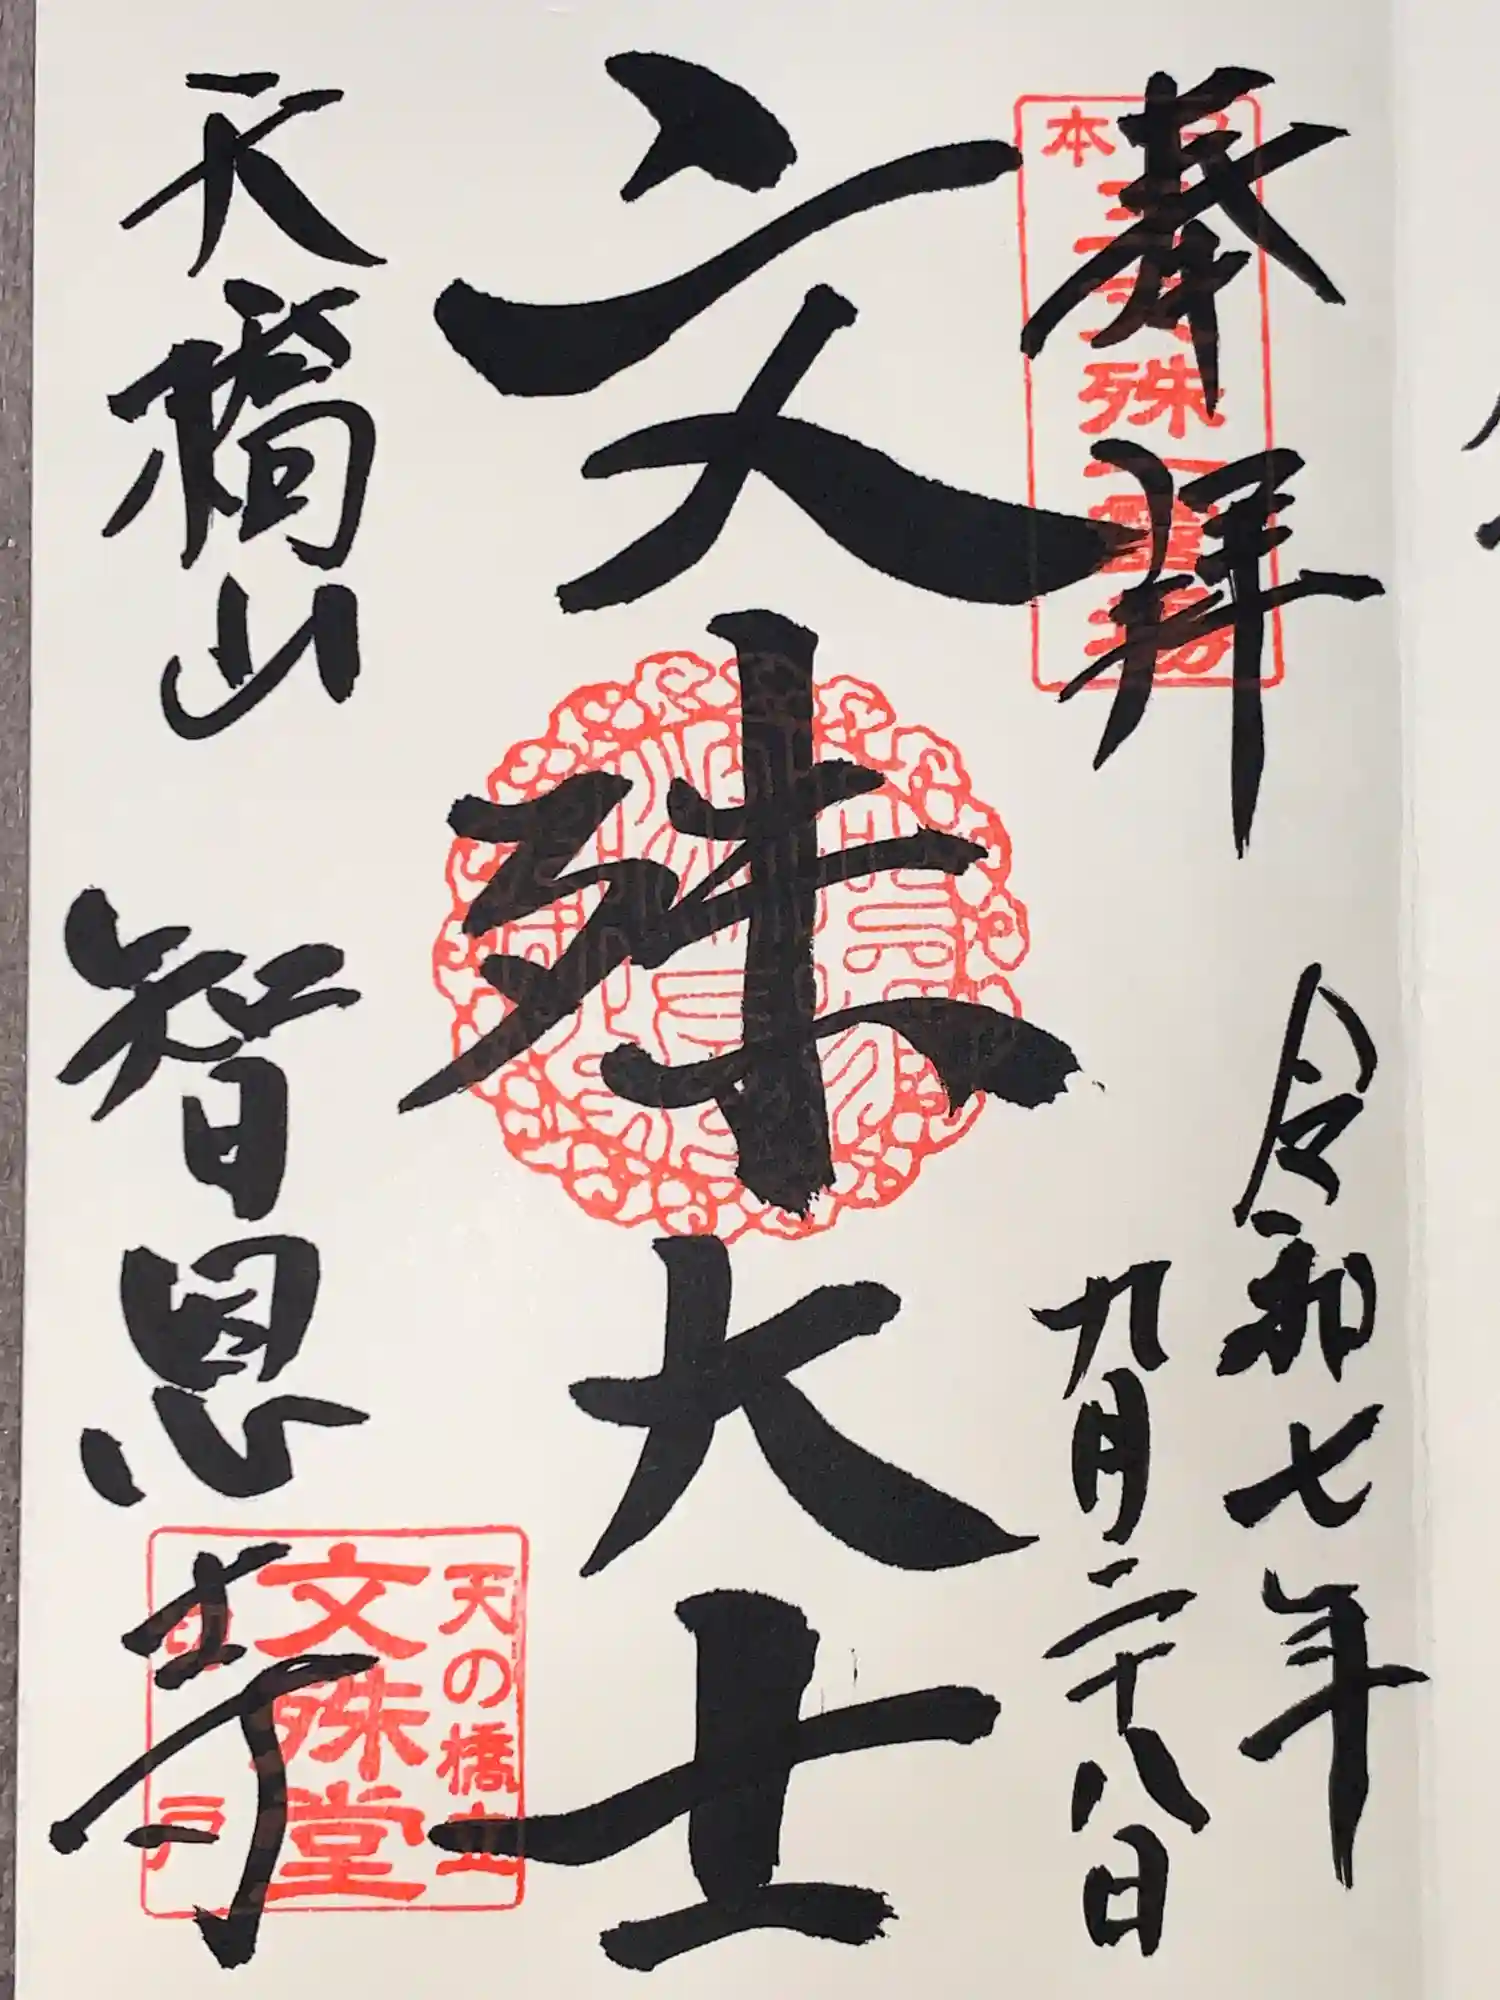 奉拝
令和七年
九月二十八日
文殊大士
天橋山
智恩寺
日本三文殊一霊場
天の橋立
文殊堂
切戸